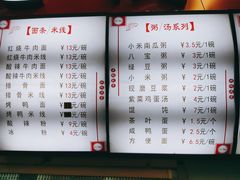 【面条/米线】
红烧牛肉面 ¥13元/碗
红烧牛肉米线 ¥13元/碗
酸辣牛肉面 ¥13元/碗
酸辣牛肉米线 ¥13元/碗
排骨面 ¥13元/碗
排骨米线 ¥13元/碗
烤鸭面 ¥ 元/碗
烤鸭米线 ¥ 元/碗
酸辣 ¥9元/碗
冰粉 ¥4元/碗
【粥/汤系列】
小米南瓜粥 ¥3.5元/1碗
八宝粥 ¥3元/1碗
绿豆粥 ¥3元/1碗
小米粥 ¥2元/1碗
现磨豆浆 ¥2元/1碗
紫菜鸡蛋汤 ¥2元/1碗
馄饨 ¥7元/1碗
茶叶蛋 ¥1.5元/个
咸鸭蛋 ¥2.5元/个
方便面 ¥6.5元/碗